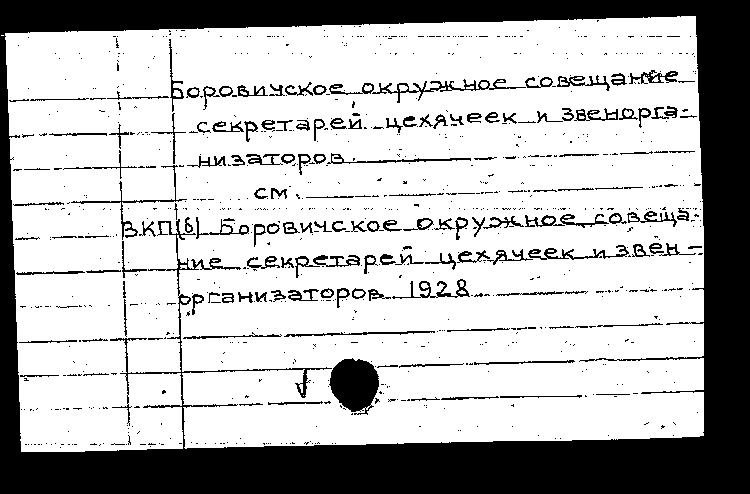 Боровичское окружное совещание
секретарей цехячеек и звенорга-
низаторов.
см.
ВКП(б) Боровичское окружное совеща-
ние секретарей цехячеек и звен-
организаторов 1928